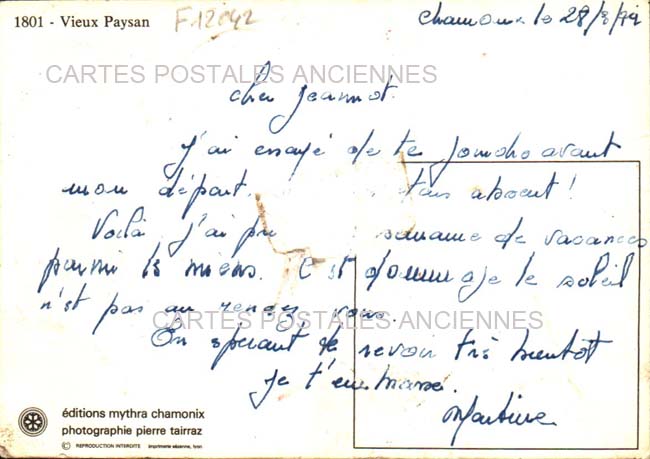 1801 - Vieux Paysan
F12042
Chamonix le 28/8/79
CARTES POSTALES ANCIENNES
Cher Jeannot.
J'ai essayé de te joindre avant
mon départ. tais absent!
Voilà j'ai pri semaine de vacances
parmi les miens. C'est dommage le soleil
n'est pas au rendez vous.
CARTES POSTALES ANCIENNES
En espérant te revoir très bientôt
je t'embrasse.
Martine
éditions mythra chamonix
photographie pierre tairraz
© REPRODUCTION INTERDITE imprimerie sézanne, lyon